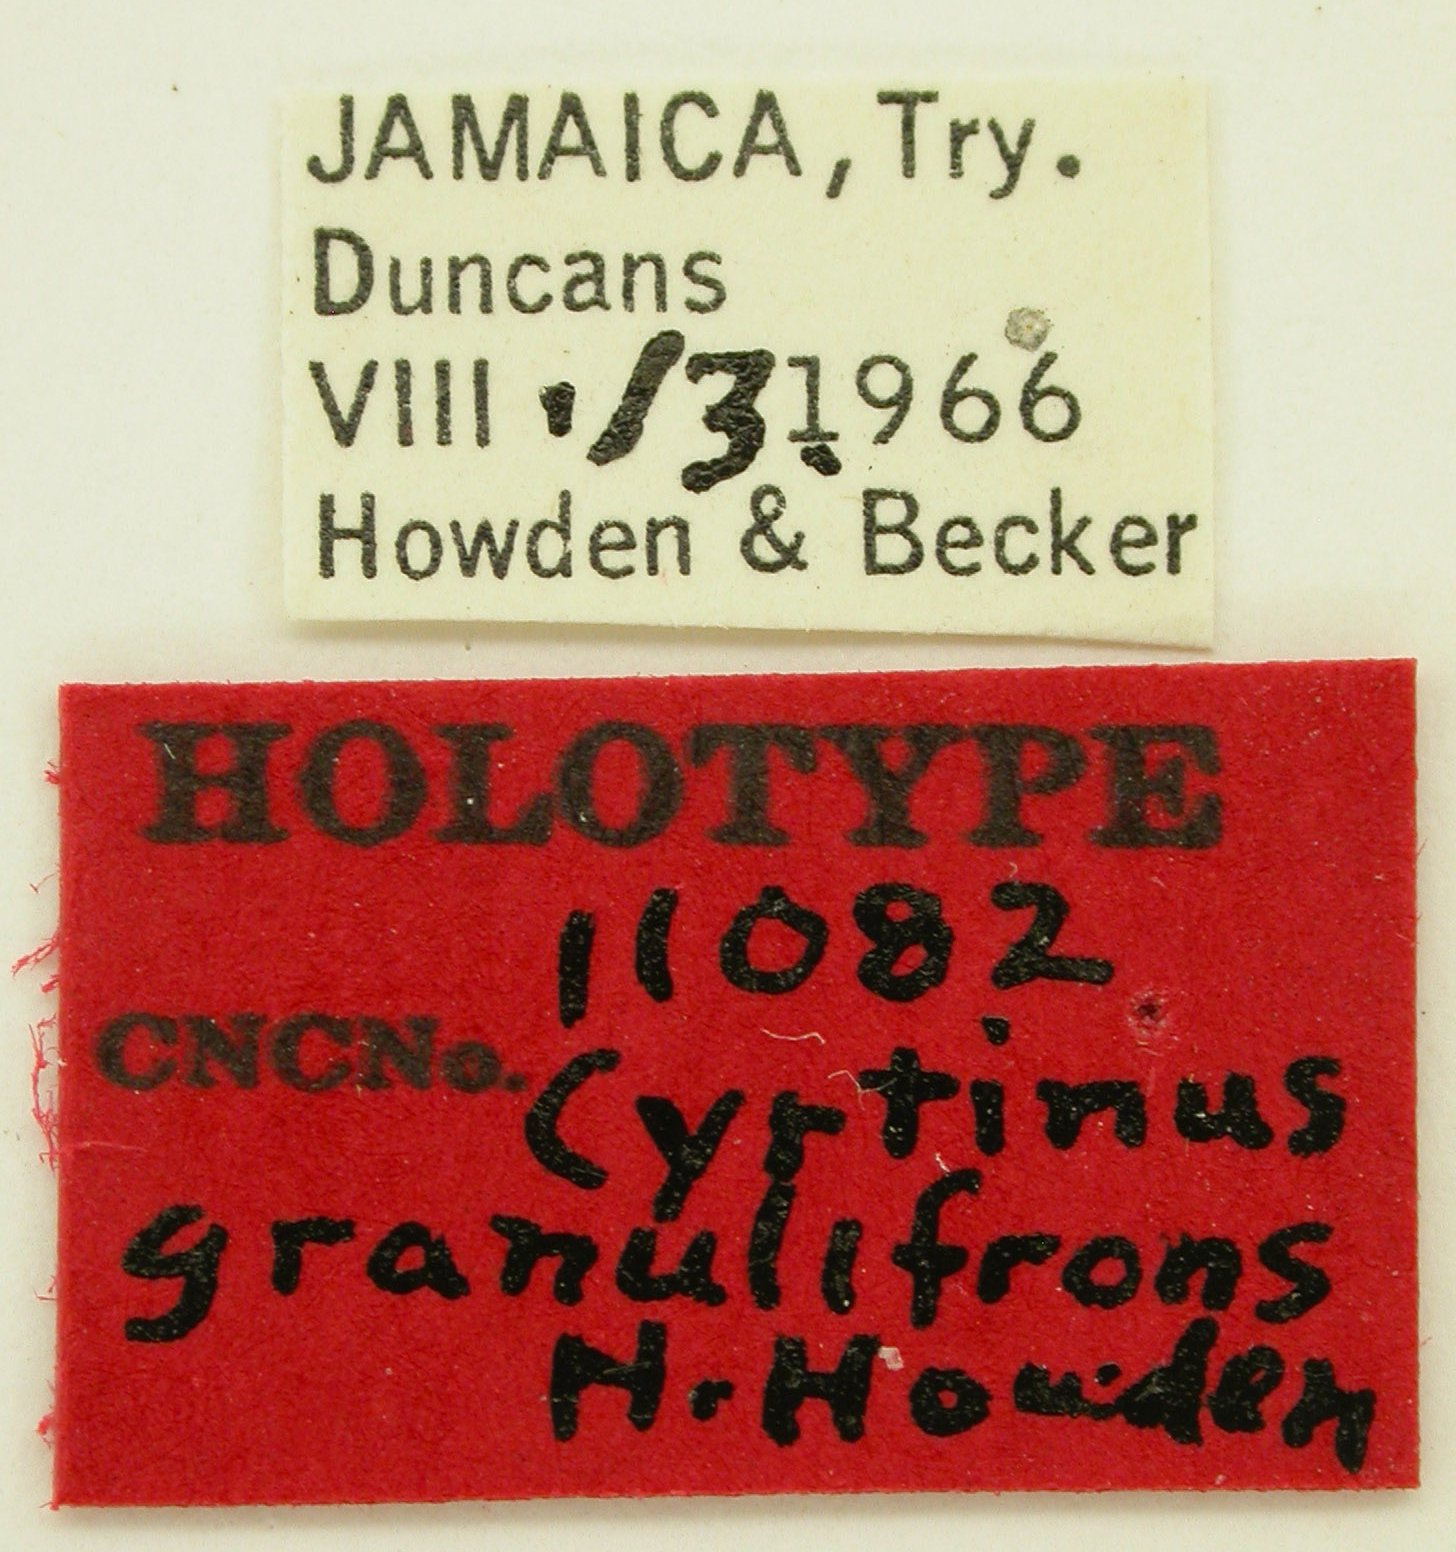 JAMAICA, Try.
Duncans
VIII . 13. 1966
Howden & Becker
HOLOTYPE
11082
CNCNo.
Cyrtinus
granulifrons
H. Howden